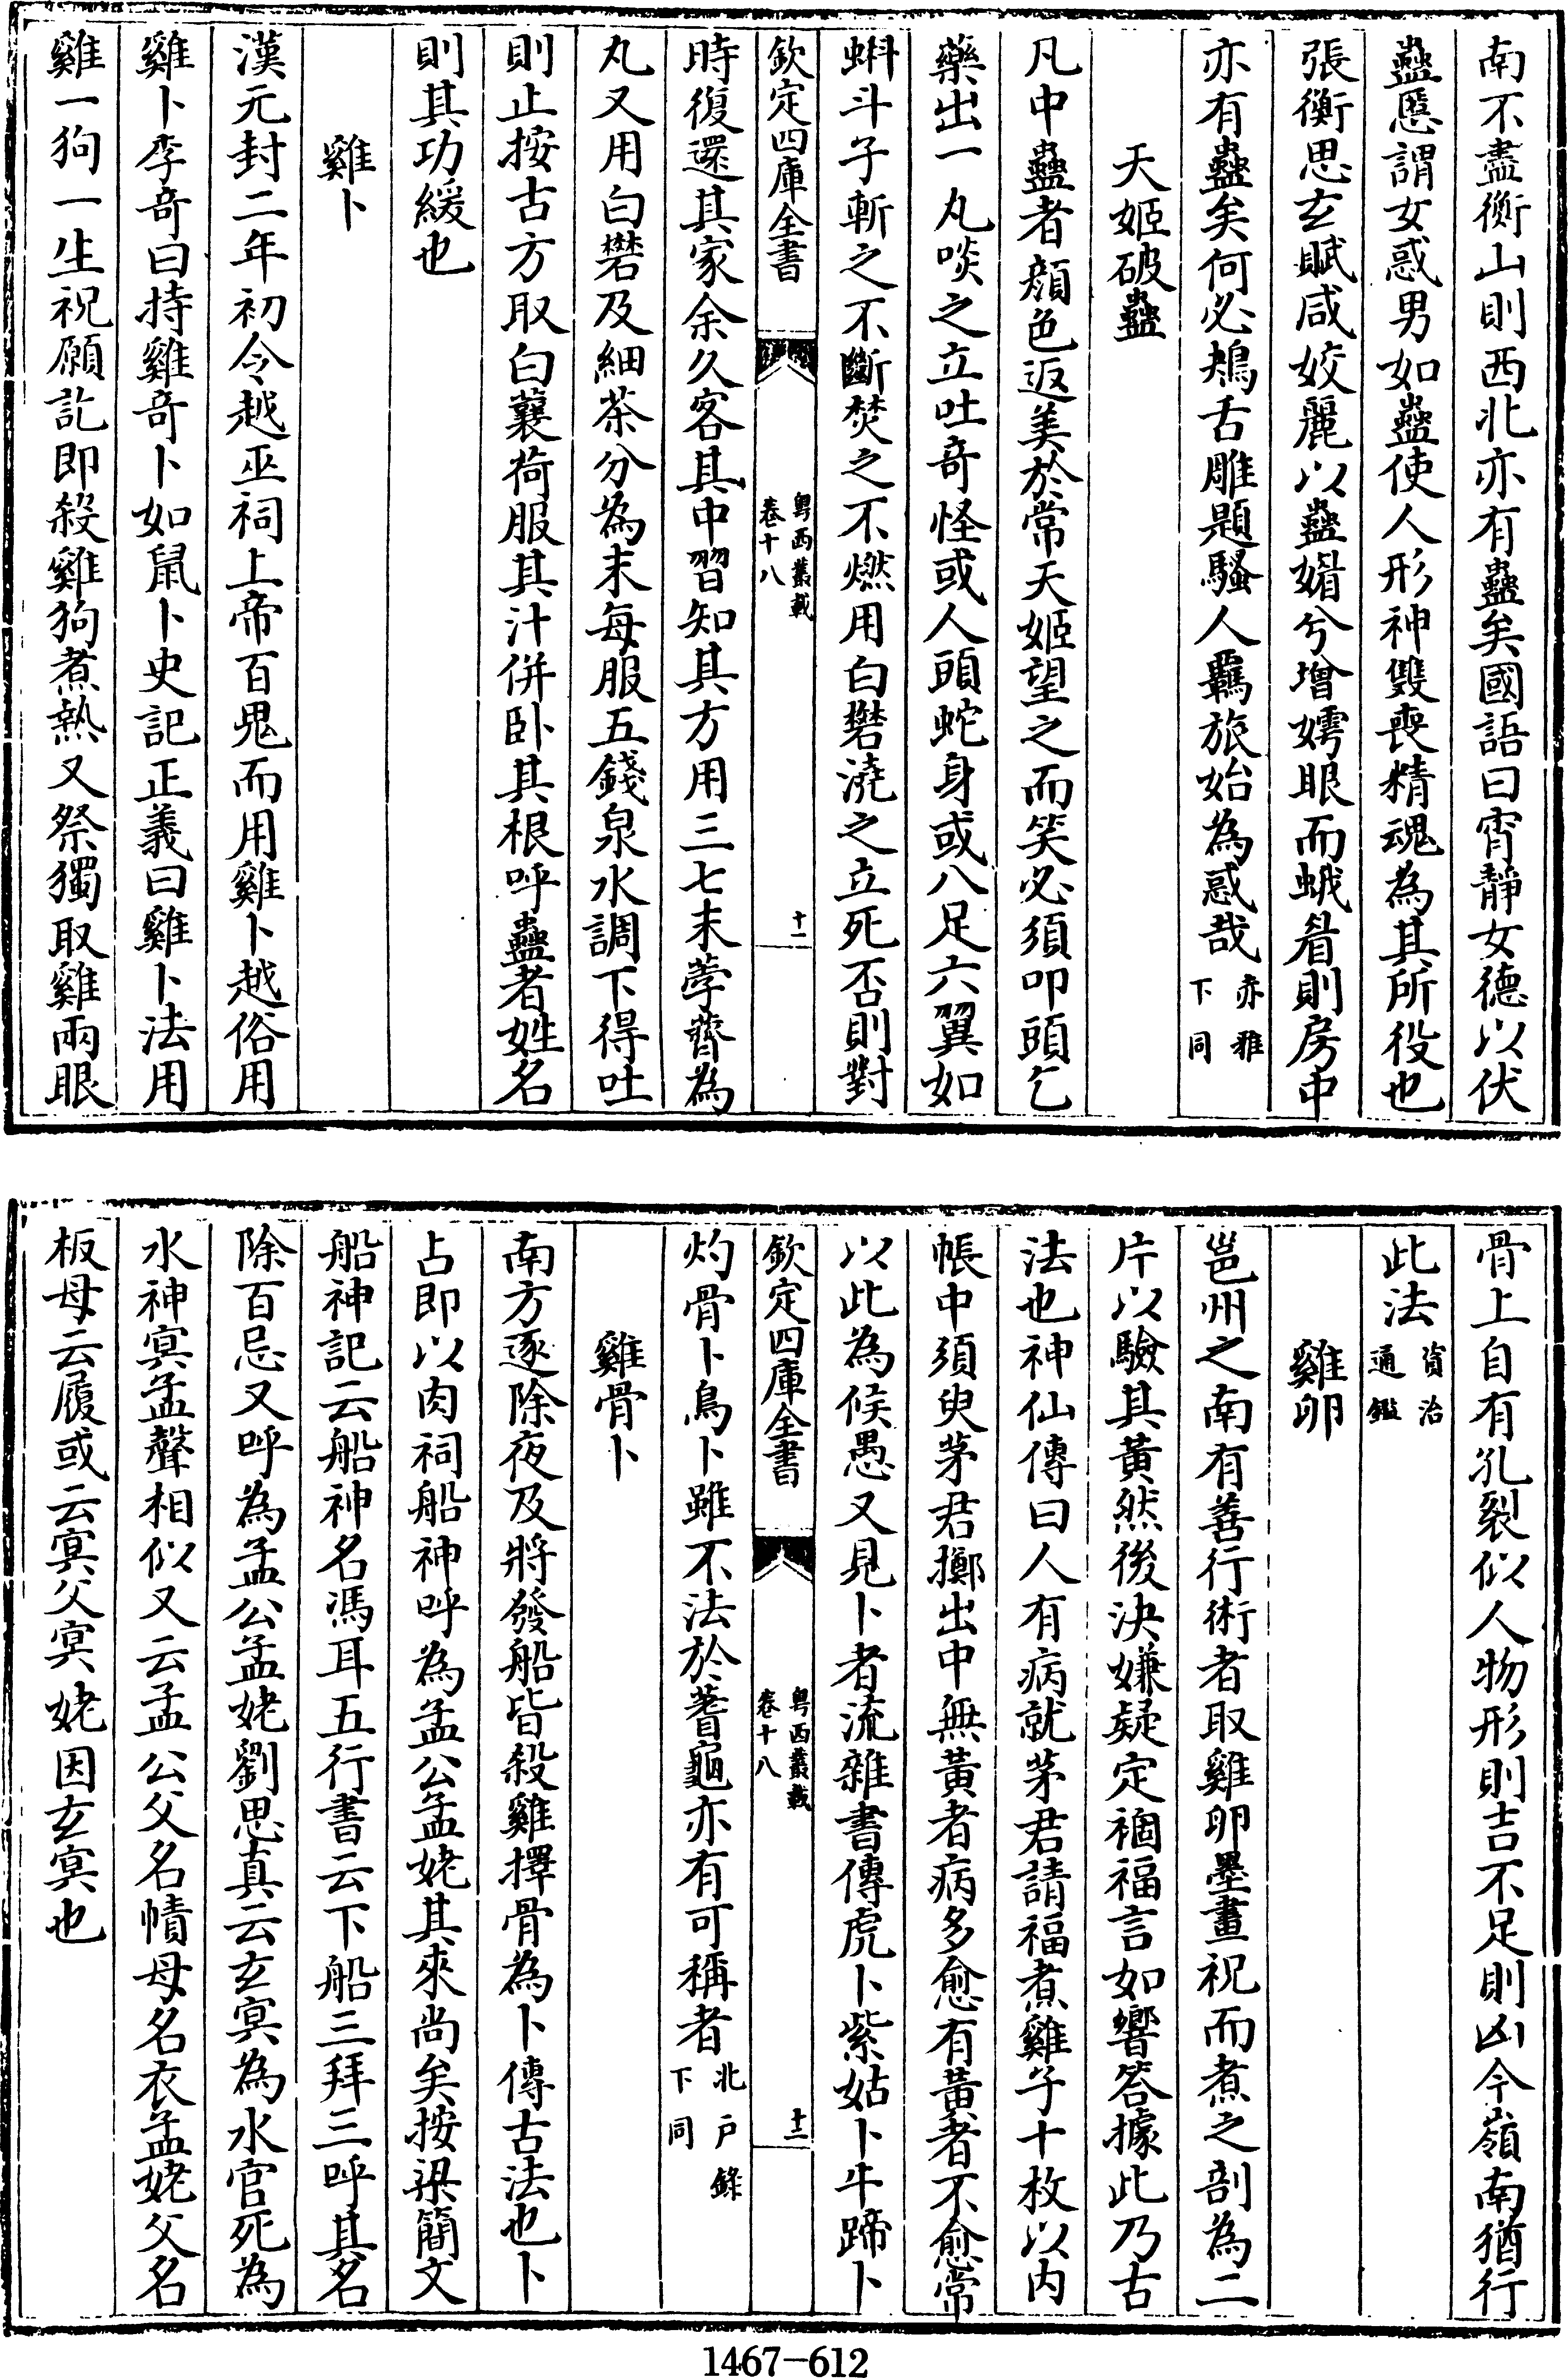 南不盡衡山則西北亦有蠱矣國語曰宵靜女德以伏
蠱慝謂女惑男如蠱使人形神雙喪精魂為其所役也
張衡思玄賦咸姣麗以蠱媚兮增嫮眼而蛾眉則房中
亦有蠱矣何必鴂舌雕題騷人羈旅始為惑哉亦雅下同
天姬破蠱
凡中蠱者顏色返美於常天姬望之而笑必須叩頭乞
藥出一丸啖之立吐奇怪或人頭蛇身或八足六翼如
蝌斗子斬之不斷焚之不燃用白礬澆之立死否則對
欽定四庫全書
粵西叢載
卷十八
十一
時復還其家余久客其中習知其方用三七末荸薺為
丸又用白礬及細茶分為末每服五錢泉水調下得吐
則止按古方取白蘘荷服其汁併臥其根呼蠱者姓名
則其功緩也
雞卜
漢元封二年初令越巫祠上帝百鬼而用雞卜越俗用
雞卜李奇曰持雞奇卜如鼠卜史記正義曰雞卜法用
雞一狗一生祝願訖即殺雞狗煮熟又祭獨取雞兩眼
骨上自有孔裂似人物形則吉不足則凶今嶺南猶行
此法資治通鑑
雞卵
邕州之南有善行術者取雞卵墨畫祝而煮之剖為二
片以驗其黃然後決嫌疑定禍福言如響答據此乃古
法也神仙傳曰人有病就茅君請福煮雞子十枚以內
帳中須臾茅君擲出中無黃者病多愈有黃者不愈常
以此為候愚又見卜者流雜書傳虎卜紫姑卜牛蹄卜
欽定四庫全書
粵西叢載
卷十八
十二
灼骨卜鳥卜雖不法於蓍龜亦有可稱者北戶錄下同
雞骨卜
南方逐除夜及將發船皆殺雞擇骨為卜傳古法也卜
占即以肉祠船神呼為孟公孟姥其來尚矣按梁簡文
船神記云船神名馮耳五行書云下船三拜三呼其名
除百忌又呼為孟公孟姥劉思真云玄冥為水官死為
水神冥孟聲相似又云孟公父名幘母名衣孟姥父名
板母云履或云冥父冥姥因玄冥也
1467-612